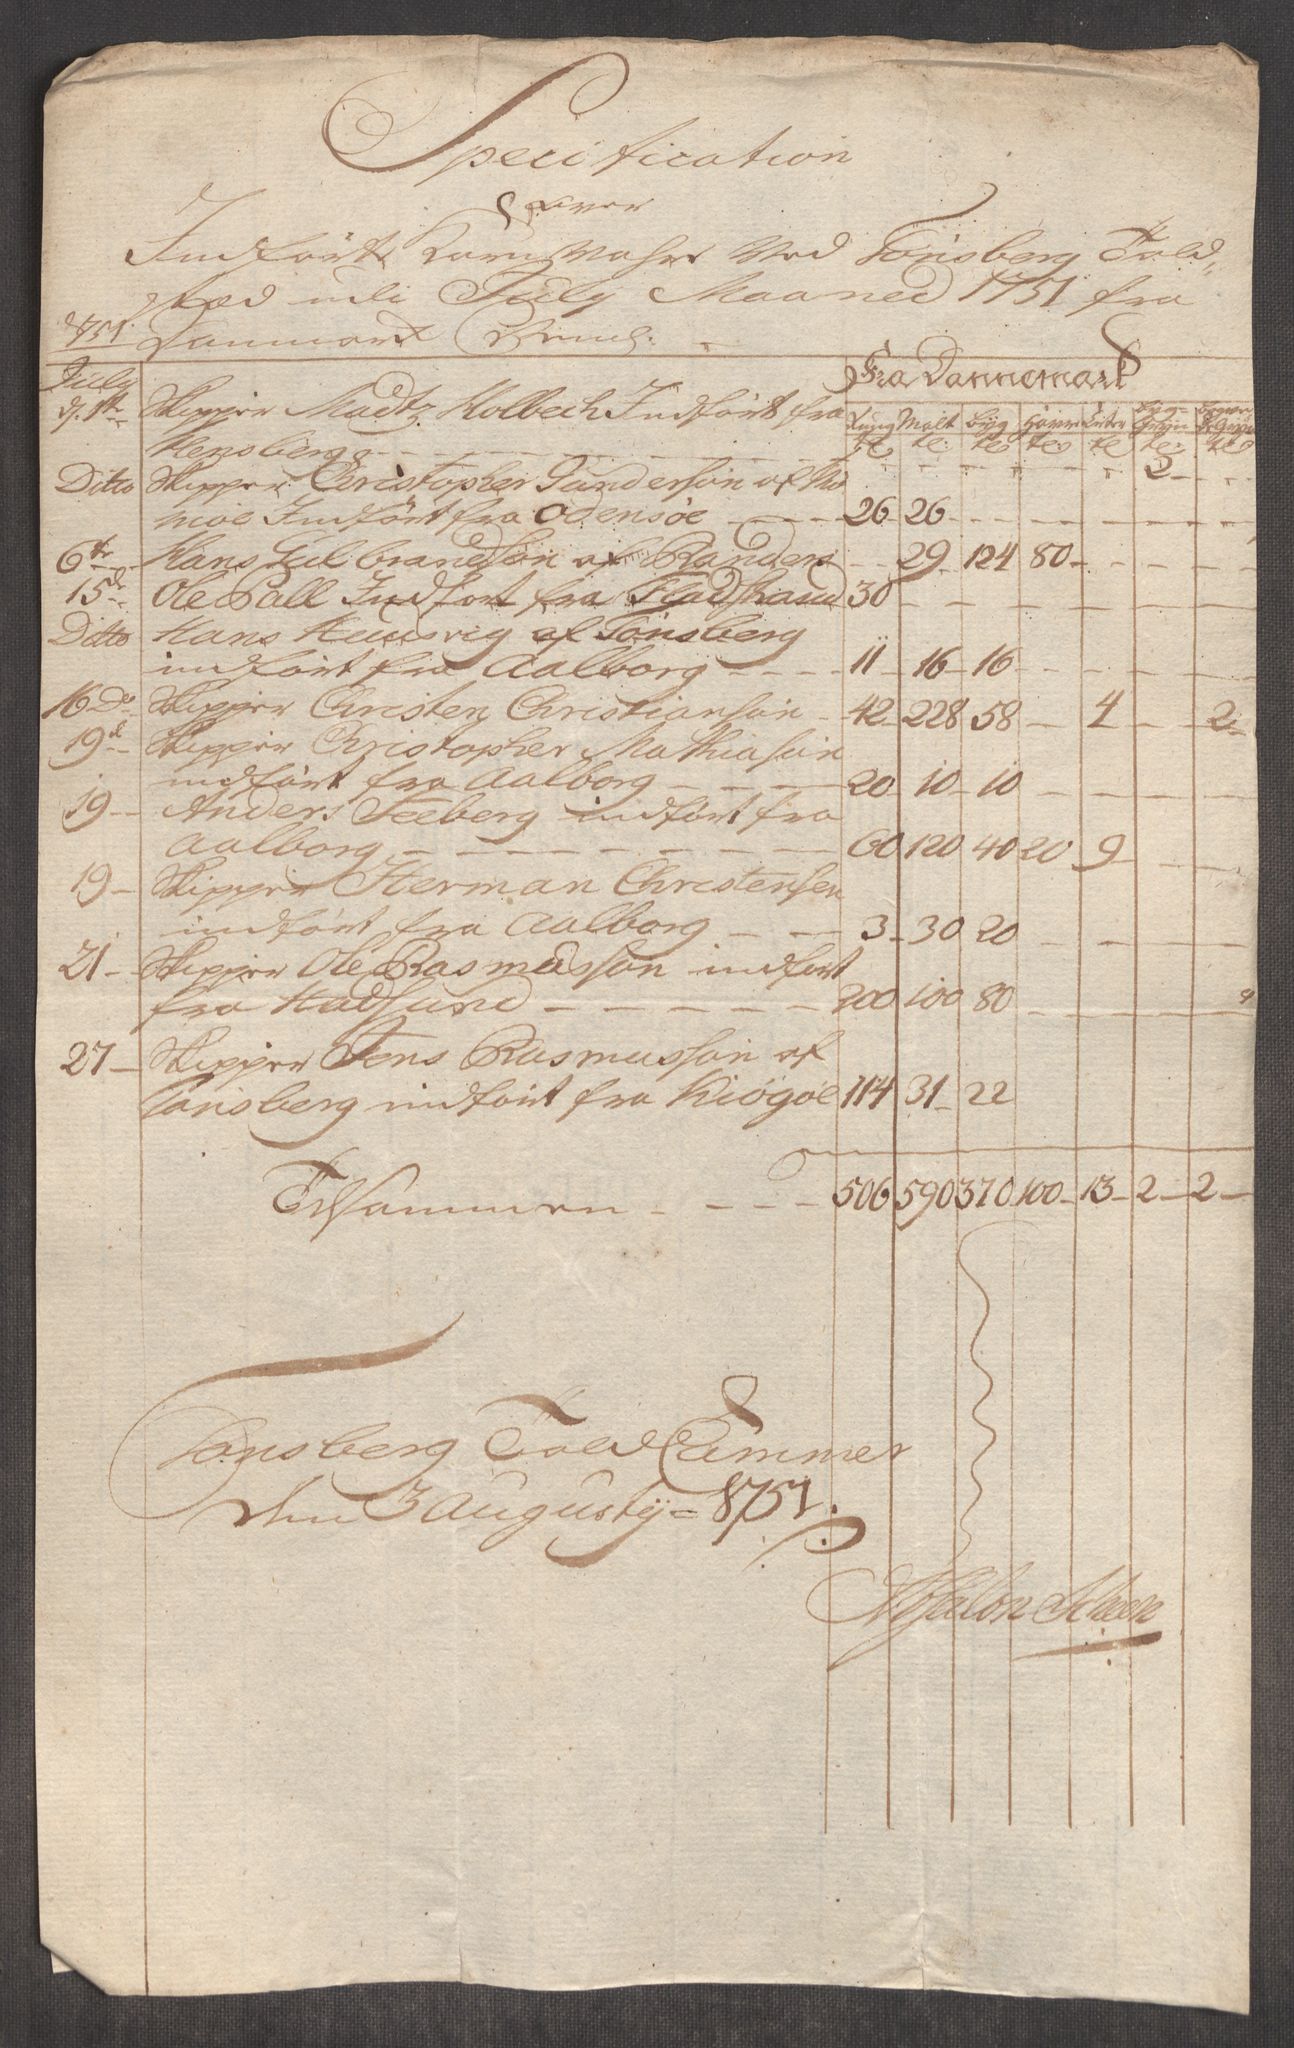 Specification
over
Indført Korn Vahre Ved Tönsberg Told,
stæd udi July Maaned 1751 fra
1751. Danmark
July Fra Dannemark
d. 1ste Skipper Madtz Holbech Indført fra Rung Malt Byg Havre Erter Byg Gryn
Flensberg te te te te te te te
2
Ditto Skipper Christopher Gundersön af
Indført fra Odensöe 26 26
6te Hans Gulbrandsön af Randers 29 124 80
15de Ole Pall Indfort fra Fladstrand 30
Ditto Hans af Tönsberg
indført fra Aalborg 11 16 16
16 Do Skipper Christen Christiansön 42 228 58 4 2
19d Skipper Christopher Mathiasön
indfört fra Aalborg 20 10 10
19 Anders Seeberg indfört fra
Aalborg 60 120 40 20 9
19 Skipper Herman Christensen
indført fra Aalborg 3 30 20
21 Skipper Ole Rasmusson indfort
fra Hadsund 200 100 80
27 Skipper Jens Rasmussön af
Tönsberg indfört fra Kiögöe 114 31 22
Tilsammen 506 590 370 100 13 2 2
Tönsberg Told Cammer
den 3 Augustij = 1751.
Absalon Scheen